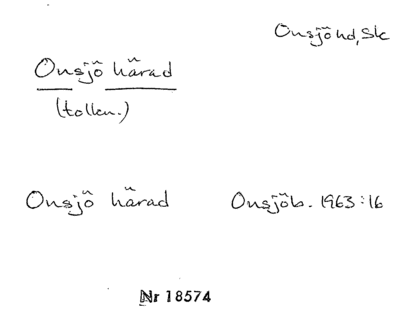 Onsjö hd, Sk
Onsjö härad
(tolkn.)
Onsjö härad Onsjöb. 1963:16
Nr 18574